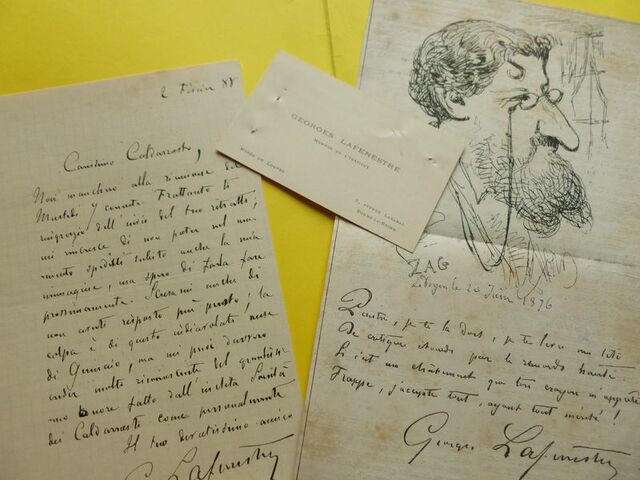 2 Février 88
Carissimo Caldarrosto,
Non mancherò alla riunione del
Martedì 7 corrente. Frattanto ti
ringrazio dell'invio del tuo ritratto;
mi rincresce di non poter nel mo
mento spedirti subito anche la mia
immagine, ma spero di farla fare
prossimamente. Scusami anche di
non averti risposto più presto; la
colpa è di questo indiavolato mese
di Gennaio, ma mi puoi davvero
creder molto riconoscente del grandissi
mo onore fatto dall'inclita Società
dei Caldarrosti come personalmente
Il tuo devotissimo amico
G. Lafenestre
GEORGES LAFENESTRE
MEMBRE DE L'INSTITUT
MUSÉE DU LOUVRE
5, AVENUE LAKANAL
BOURG-LA-REINE
le 20 Juin 1876
Peintre, je te la dois, je te livre ma tête
De critique chauve par le remords hanté.
Si c'est un châtiment que ton crayon m'apprête
Frappe, j'accepte tout, ayant tout mérité!
Georges Lafenestre